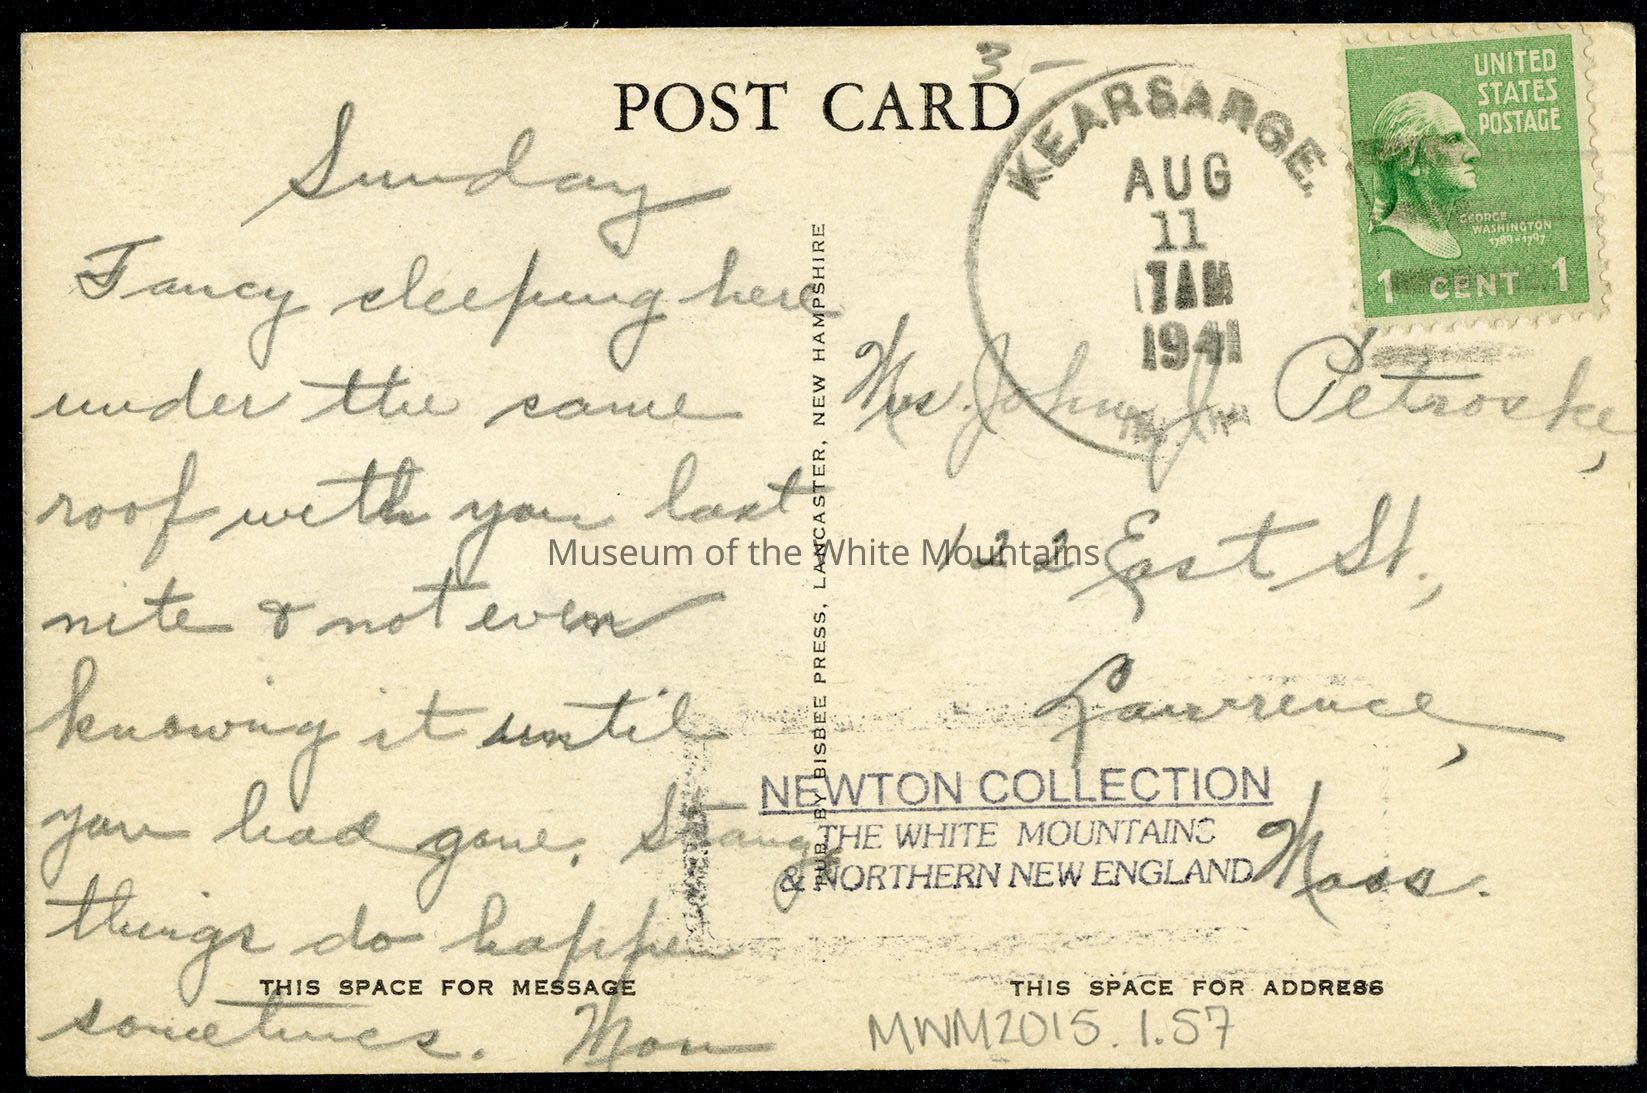 3 —
POST CARD
KEARSARGE.
AUG
11
7 AM
1941
UNITED
STATES
POSTAGE
GEORGE
WASHINGTON
1789-1797
1 CENT 1
Sunday
Fancy sleeping here
under the same
roof with you last
nite & not even
knowing it until
you had gone. Strange
things do happen
sometimes. Mom
PUB. BY BISBEE PRESS, LANCASTER, NEW HAMPSHIRE
Mrs. John J. Petroske,
122 East St.,
Lawrence,
Mass.
Museum of the White Mountains
NEWTON COLLECTION
THE WHITE MOUNTAINS
& NORTHERN NEW ENGLAND
THIS SPACE FOR MESSAGE
THIS SPACE FOR ADDRESS
MWM2015.1.57